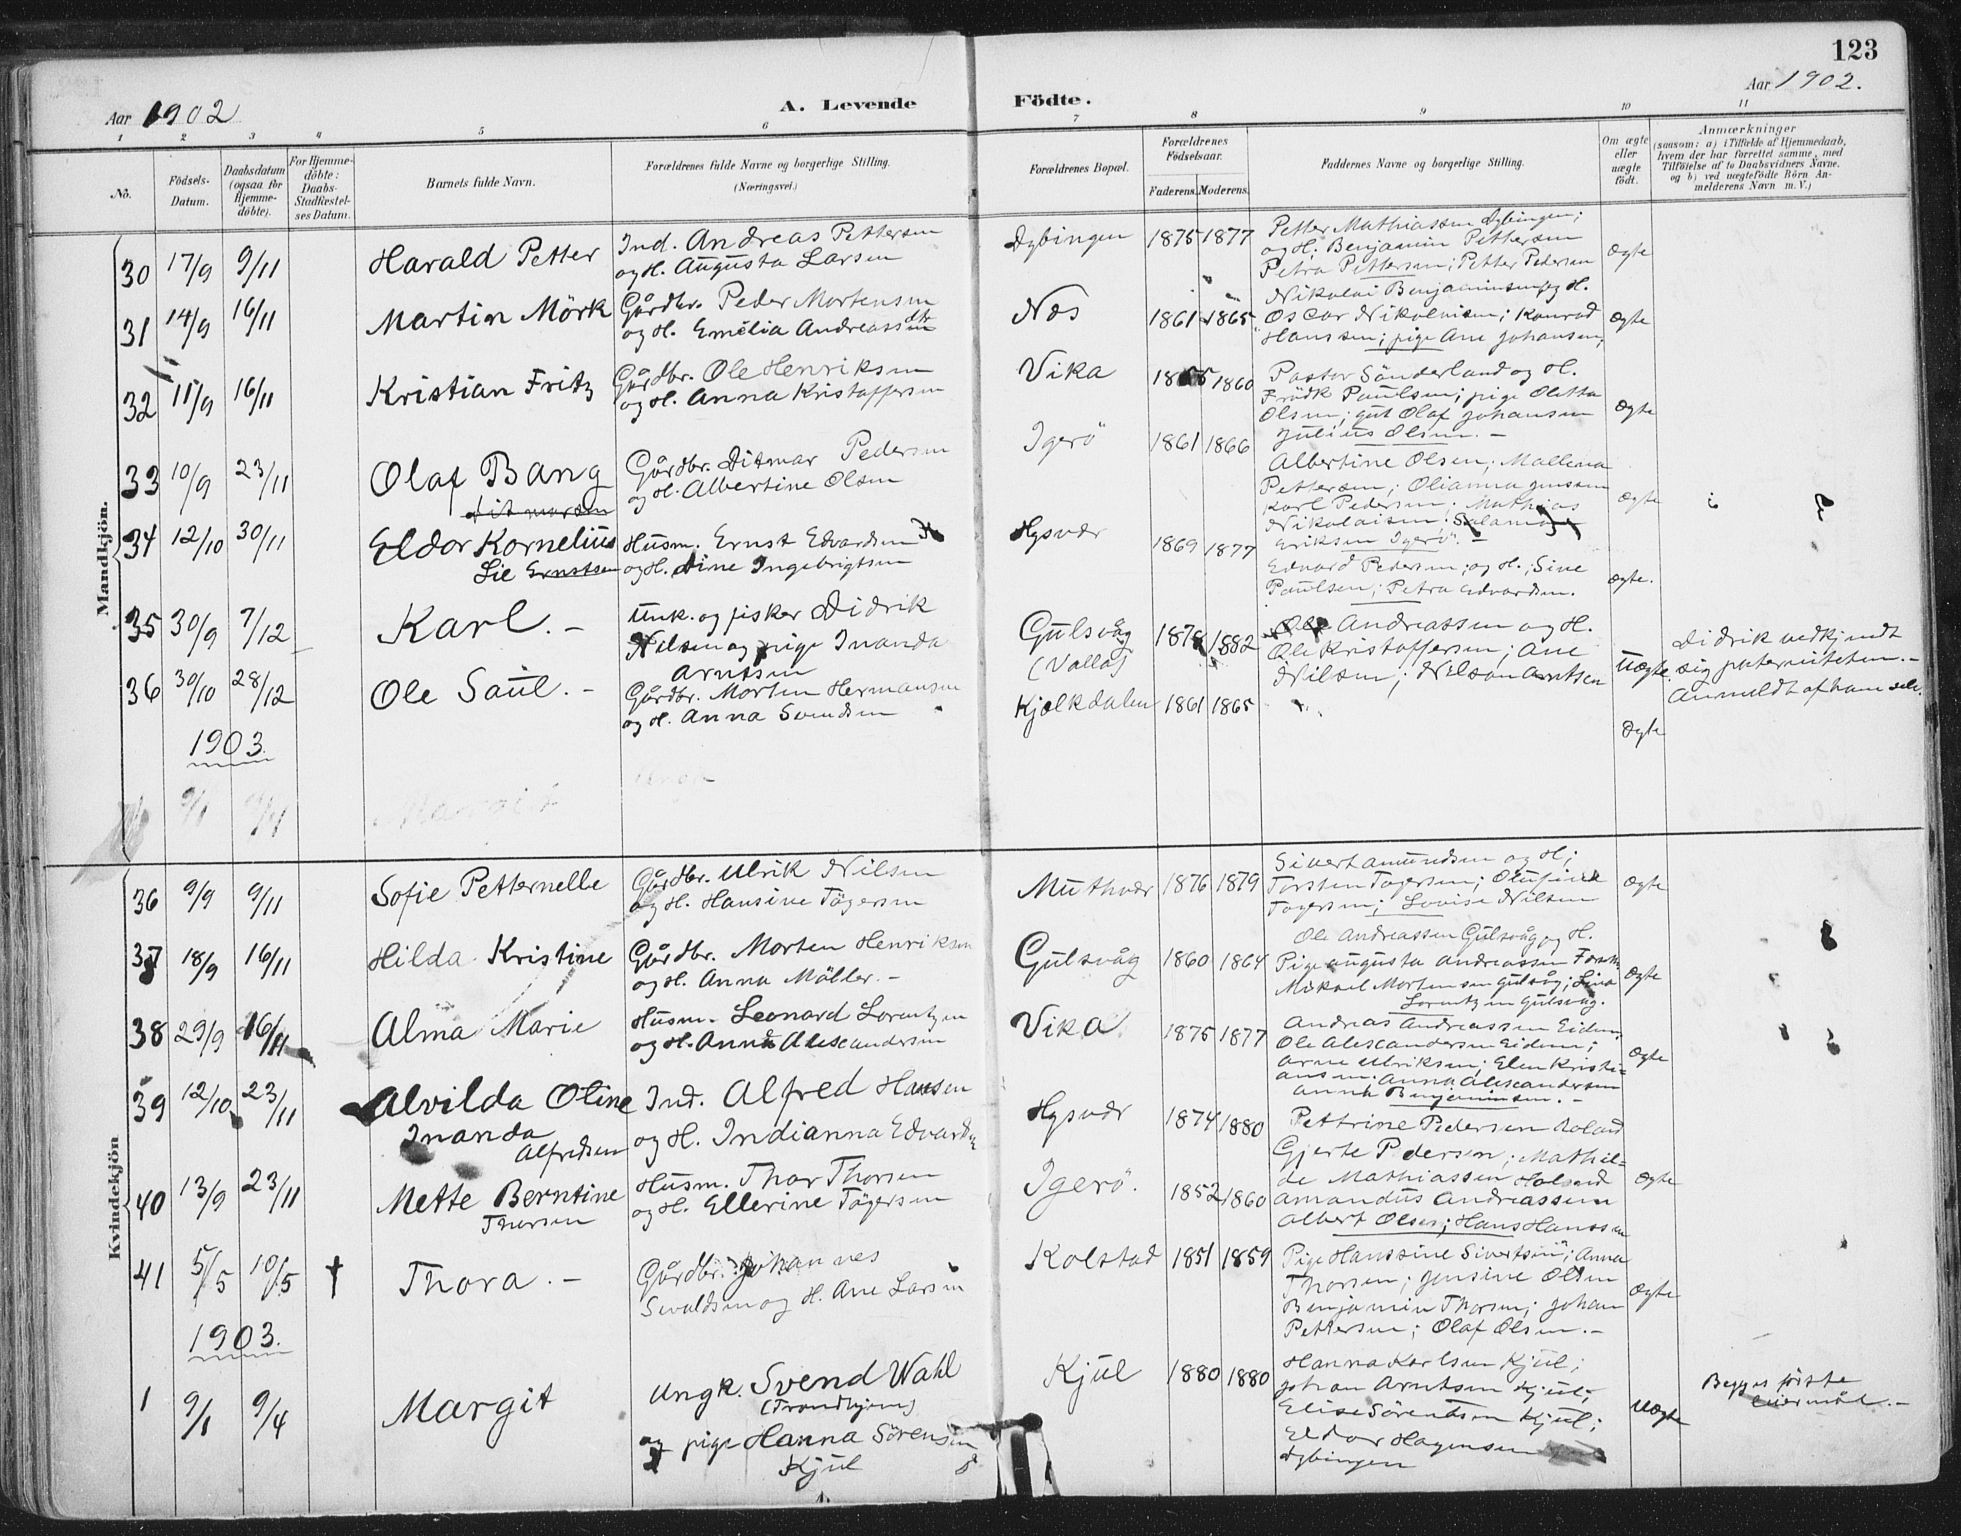 123
Aar 1902
A. Levende Födte.
Aar 1902.
1 2 3 4 5 6 7 8 9 10 11
No.
Födsels-Datum.
Daabsdatum (ogsaa for Hjemme-döbte).
For Hjemme-döbte: Daabs-Stadfæstel-ses Datum.
Barnets fulde Navn.
Forældrenes fulde Navne og borgerlige Stilling. (Næringsvei.)
Forældrenes Bopæl.
Forældrenes Födselsaar.
Faderens. Moderens.
Faddernes Navne og borgerlige Stilling.
Om ægte eller uægte födt.
Anmærkninger
(saasom: a) i Tilfælde af Hjemmedaab, hvem der har forrettet samme, med Tilföielse af to Daabsvidners Navne. og b) ved uægtefödte Börn An-melderens Navn m. V.)
Mandkjön.
30 17/9 9/11 Harald Petter
Ind. Andreas Pettersen
og H. Augusta Larsen
Dybingen 1875 1877
Petter Mathiassen Dybingen;
og H; Benjamin Pettersen
Petra Pettersen; Petter Pedersen
ægte
31 14/9 16/11 Martin Mörk
Gårdbr. Peder Mortensen
og H. Emelia Andreassen
Næs 1861 1865
Nikolai Benjaminsen og H.
Oscar Nikolaisen; Konrad
Hanssen; pige Ane Johansen;
ægte
32 11/9 16/11 Kristian Fritz
Gårdbr. Ole Henriksen
og H. Anna Kristoffersen
Vika 1860
Pastor Sönderland og H.
Frödk Paulsen; pige Oletta
Olsen; gut Olaf Johansen
Julius Olsen. –
ægte
33 10/9 23/11 Olaf Bang
Gårdbr. Ditmar Pedersen
og H. Albertine Olsen
Igerö 1861 1866
Albertine Olsen; Mallena
Pettersen; Olianna Jenssen
Karl Pedersen; Mathias
Nikolaisen;
Eriksen Igerö. –
ægte
34 12/10 30/11 Eldor Kornelius
Lie Ernstsen
Husm. Ernst Edvardsen
og H. Dine Ingebrigtsen
Hysvær 1869 1877
Edvard Pedersen; og H.; Sine
Paulsen; Petra Edvardsen.
ægte.
35 30/9 7/12 Karl. –
Unk. og fisker Didrik
Nilsen og pige Inanda
Arntsen
Gulsvåg
(Valla) 1882
Ole Andreassen og H.
Ole Kristoffersen; Ane
Nilsen; Nilsan Arntsen
Uægte.
Didrik vedkjendt
sig paterniteten. –
Anmeldt af ham selv.
36 30/10 28/12 Ole Saul. –
Gårdbr. Morten Hermansen
og H. Anna Svendsen
Kjælkdalen 1861 1865
ægte
1903.
9/1 9/4 Margit
Kvindekjön
36 9/9 9/11 Sofie Petternelle
Gårdbr. Ulrik Nilsen
og H. Hansine Tögersen
Muthvær 1876 1879
Sivert Amundsen og H;
Torsten Togersen;
Togersen; Lovise Nilsen
ægte
37 18/9 16/11 Hilda Kristine
Gårdbr. Morten Henriksen
og H. Anna Möller. –
Gulsvåg 1860 1864
Ole Andreassen Gulsvåg og H.
Pige Augusta Andreassen
Mikael Mortensen Gulsvåg; Lina
Lorentzen Gulsvåg.
ægte
38 29/9 16/11 Alma Marie
Husm. Leonard Lorentzen
og H. Anna Alexandersen
Vika 1875 1877
Andreas Andreassen Eidem;
Ole Alexandersen Eidem;
Arne Ulriksen; Elen Kristi-
ansen; Anna Alexandersen
Anna Benjaminsen. –
ægte
39 12/10 23/11 Alvilda Oline
Inanda
Alfredsen
Ind. Alfred Hansen
og H. Indianna Edvardsen
Hysvær 1874 1880
Pettrine Pedersen
Gjerte Pedersen; Mathil-
de Mathiassen
40 13/9 23/11 Mette Berntine
Thorsen
Husm. Thor Thorsen
og H. Ellerine Tögersen
Igerö. 1852 1860
Amandus Andreassen
Albert Olsen; Hans Hanssen
ægte
41 5/5 10/5 † Thora. –
Gårdbr. Johannes
Sivaldsen og H. Ane Larsen
Kolstad 1851 1859
Pige Hanssine Sivertsen; Anna
Thorsen; Jensine Olsen
Benjamin Thorsen; Johan
Pettersen; Olaf Olsen. –
ægte
1903.
1 9/1 9/4 Margit
Ungk. Svend Wahl
(Trondhjem)
og pige Hanna Sörensen
Kjul
Kjul 1880 1880
Hanna Karlsen Kjul;
Johan Arntsen Kjul;
Elise Sörentsen Kjul;
Eldor Hagensen
Dybingen
Uægte
Begges förste
leiermål. –